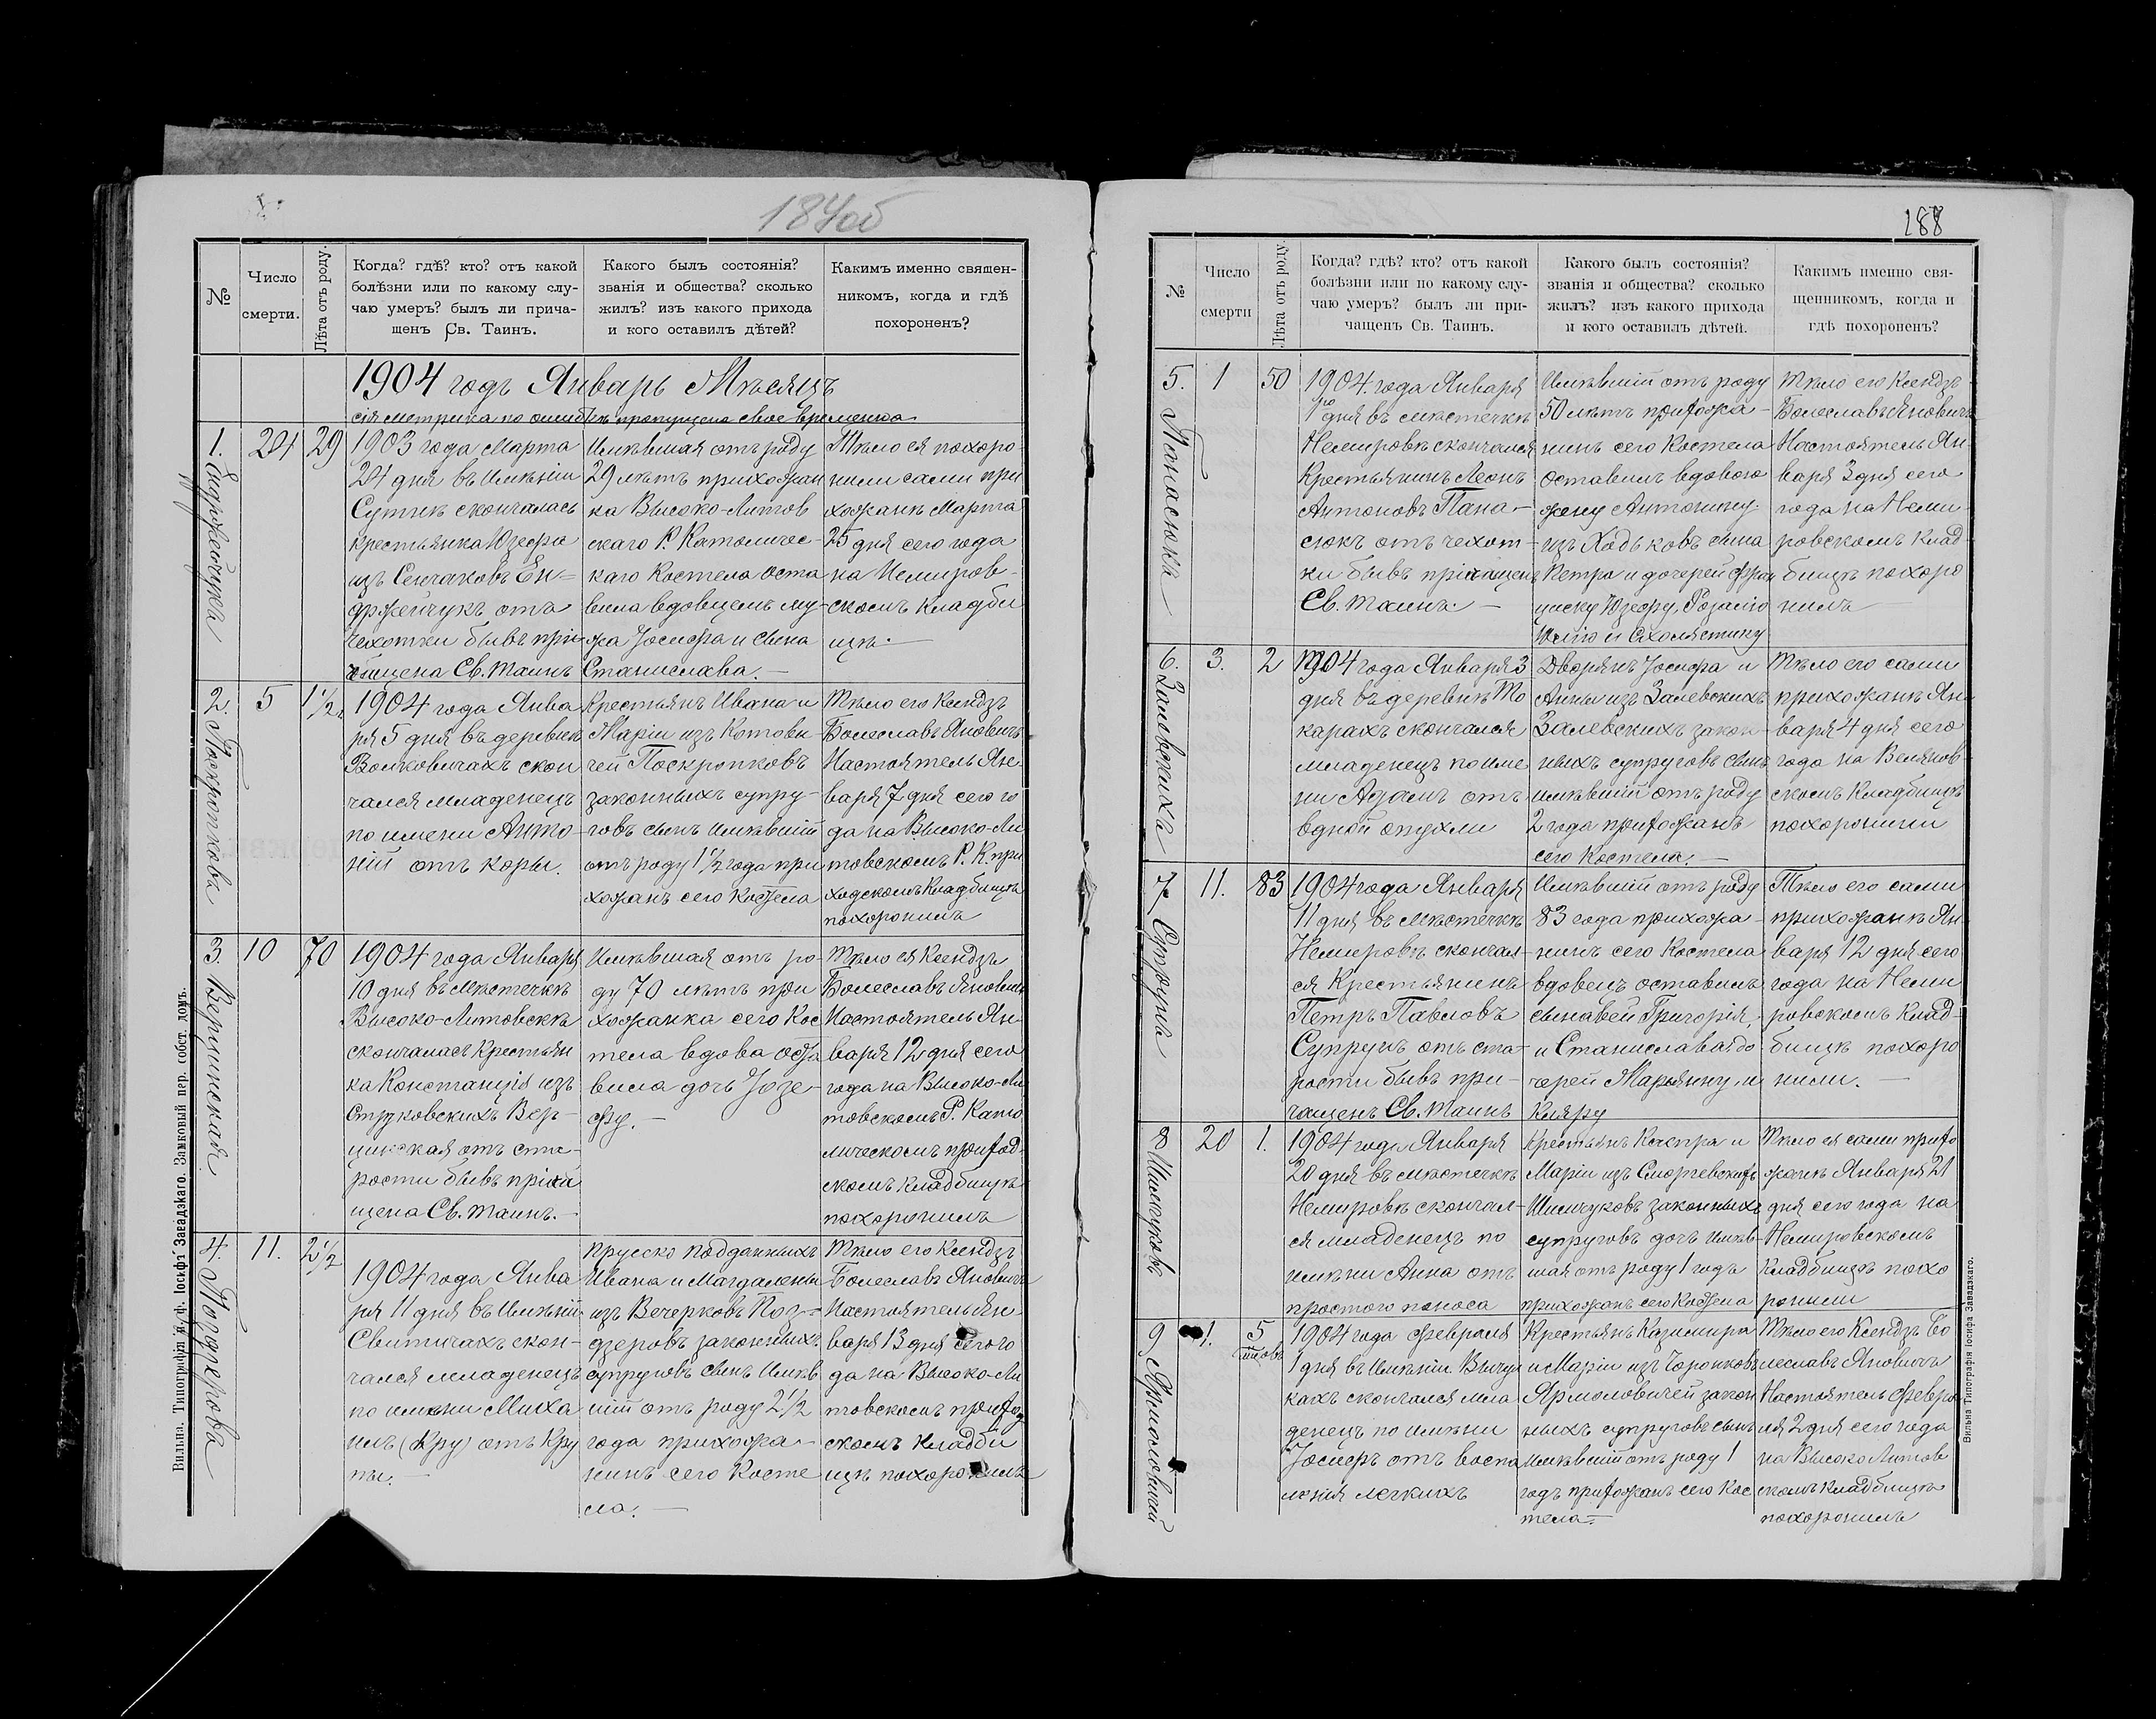 187об
№
Число
смерти.
Лѣта отъ роду.
Когда? гдѣ? кто? отъ какой
болѣзни или по какому слу-
чаю умеръ? былъ ли прича-
щенъ Св. Таинъ.
Какого былъ состоянія?
званія и общества? сколько
жилъ? изъ какого прихода
и кого оставилъ дѣтей?
Какимъ именно священ-
никомъ, когда и гдѣ
похороненъ?
1904 годъ Январь Мѣсяцъ
сія метрика по ошибкѣ пропущена свое временно
1.
Ендржейчука
24
29
1903 года Марта
24 дня въ Имѣніи
скончалась
крестьянка Юзефа
изъ Сенчаковъ Ен=
држейчукъ отъ
чахотки бывъ прі-
общена Св. Таинъ
Имѣвшая отъ роду
29 лѣтъ прихожан
ка Высоко-Литов
скаго Р. Католичес-
каго Костела оста
вила вдовцемъ му-
жа Іосифа и сына
Станислава.—
Тѣло ея похоро-
нили сами при
хожанѣ Марта
25 дня сего года
на Немиров-
скомъ кладби
щѣ.—
2.
Поскропкова
5
1½
1904 года Янва
ря 5 дня въ деревнѣ
Волковичахъ скон
чался младенецъ
по имени Анто-
ній отъ коры.
Крестьянъ Ивана и
Маріи изъ Котови-
чей Поскропковъ
законныхъ супру-
говъ сынъ имѣвшій
отъ роду 1½ года при
хожанъ сего Костела
Тѣло его Ксендзъ
Болеславъ Яновичъ
Настоятель Ян-
варя 7 дня сего го
да на Высоко-Ли
товскомъ Р. К. при
ходскомъ Кладбищѣ
похоронилъ
3.
Верцинская
10
70
1904 года Января
10 дня въ мѣстечкѣ
Высоко-Литовскѣ
скончалась Крестьян
ка Констанція изъ
Струковскихъ Вер-
цинская отъ ста-
рости бывъ пріоб
щена Св. Таинъ.—
Имѣвшая отъ ро-
ду 70 лѣтъ при
хожанка сего Кос
тела вдова оста
вила дочь Юзе-
фу.—
Тѣло ея Ксендзъ
Болеславъ Яновичъ
Настоятель Ян-
варя 12 дня сего
года на Высоко-Ли
товскомъ Р. Като
лическомъ приход-
скомъ кладбищѣ
похоронилъ
4.
Погдзерова
11.
2½
1904 года Янва
ря 11 дня въ Имѣніи
Свитичахъ скон-
чался младенецъ
по имени Миха
илъ (Кру) отъ Кру
пы.—
прусско подданныхъ
Ивана и Магдалены
изъ Вечерковъ
законныхъ
супруговъ сынъ Имѣв
шій отъ роду 2½
года прихожа-
нинъ сего Косте
ла.—
Тѣло его Ксендзъ
Болеславъ Яновичъ
Настоятель Ян
варя 13 дня сего го
да на Высоко-Ли
товскомъ приход
скомъ кладби
щѣ похоронилъ
Вильна. Типографія п. ф. Іосифъ Завадзкаго. Замковый пер. собст. домъ.
188
№
Число
смерти
Лѣта отъ роду.
Когда? гдѣ? кто? отъ какой
болѣзни или по какому слу-
чаю умеръ? былъ ли при-
чащенъ Св. Таинъ.
Какого былъ состоянія?
званія и общества? сколько
жилъ? изъ какого прихода
и кого оставилъ дѣтей.
Какимъ именно свя-
щенникомъ, когда и
гдѣ похороненъ?
5.
Панасюка
1
50
1904 года Января
1го дня въ мѣстечкѣ
Немировѣ скончался
Крестьянинъ Леонъ
Антоновъ Пана-
сюкъ отъ чахот-
ки бывъ пріобщенъ
Св. Таинъ.—
Имѣвшій отъ роду
50 лѣтъ прихожа-
нинъ сего Костела
оставилъ вдовою
жену Антонину
изъ Ходьковъ сына
Петра и дочерей Фран
циску Юзефу, Розалію
Юлію и Схолястику
Тѣло его Ксендзъ
Болеславъ Яновичъ
Настоятель Ян-
варя 3 дня сего
года на Неми-
ровскомъ клад-
бищѣ похоро
нилъ
6.
Залевскихъ
3.
2
1904 года Января 3
дня въ деревнѣ То
карахъ скончался
младенецъ по име
ни Адамъ отъ
водной опухли
Дворянъ Іосифа и
Анны изъ Залевскихъ
Залевскихъ закон-
ныхъ супруговъ сынъ
имѣвшій отъ роду
2 года прихожанъ
сего Костела.—
Тѣло его сами
прихожанѣ Ян-
варя 4 дня сего
года на Велянов-
скомъ Кладбищѣ
похоронили
7.
Супруна
11.
83
1904 года Января
11 дня въ мѣстечкѣ
Немировѣ скончал-
ся Крестьянинъ
Петръ Павловъ
Супрунъ отъ ста-
рости бывъ при-
чащенъ Св. Таинъ
Имѣвшій отъ роду
83 года прихожа-
нинъ сего Костела
вдовецъ оставилъ
сынавей Григорія,
и Станислава, до
черей Марьянну и
Кляру
Тѣло его сами
прихожанѣ Ян-
варя 12 дня сего
года на Неми
ровскомъ Клад-
бищѣ похоро
нили.—
8
Шимчуковъ
20
1.
1904 года Января
20 дня въ мѣстечкѣ
Немировѣ скончал-
ся младенецъ по
имѣни Анна отъ
простого поноса
Крестьянъ Каспра и
Маріи изъ Сморчевскихъ
Шимчуковъ законныхъ
супруговъ дочь имѣв-
шая отъ роду 1 годъ
прихожанъ сего Костела
Тѣло ея сами прихо
жанѣ Января 21
дня сего года на
Немировскомъ
Кладбищѣ похо
ронили
9
Ярмоловичей
1.
5
1904 года Февраля
1 дня въ Имѣніи Вычул
кахъ скончался мла
денецъ по имѣни
Іосифъ отъ воспа
ленія легкихъ
Крестьянъ Казимира
и Маріи изъ
Ярмоловичей закон
ныхъ супруговъ сынъ
Имѣвшій отъ роду 1
годъ прихожанъ сего Кос
тела.—
Тѣло его Ксендзъ Бо
леславъ Яновичъ
Настоятель Февра
ля 2 дня сего года
на Высоко Литов
скомъ кладбищѣ
похоронилъ
Вильна Типографія Іосифа Завадзкаго.